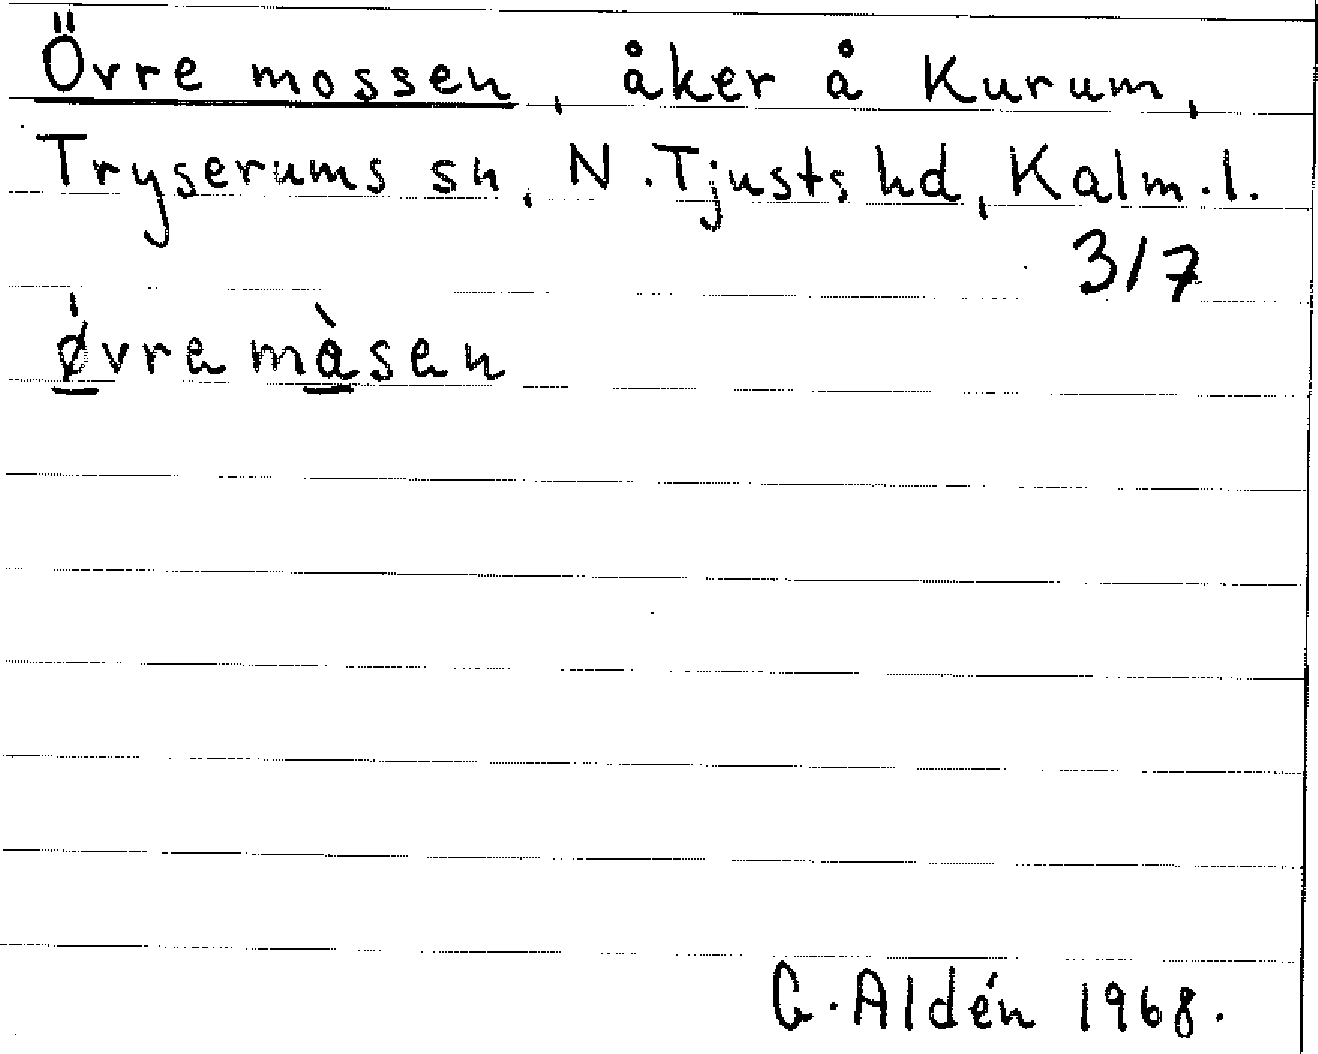 Övre mossen, åker å Kurum,
Tryserums sn, N. Tjusts hd, Kalm. l.
3/7
ǿvrе màsen
G. Aldén 1968.